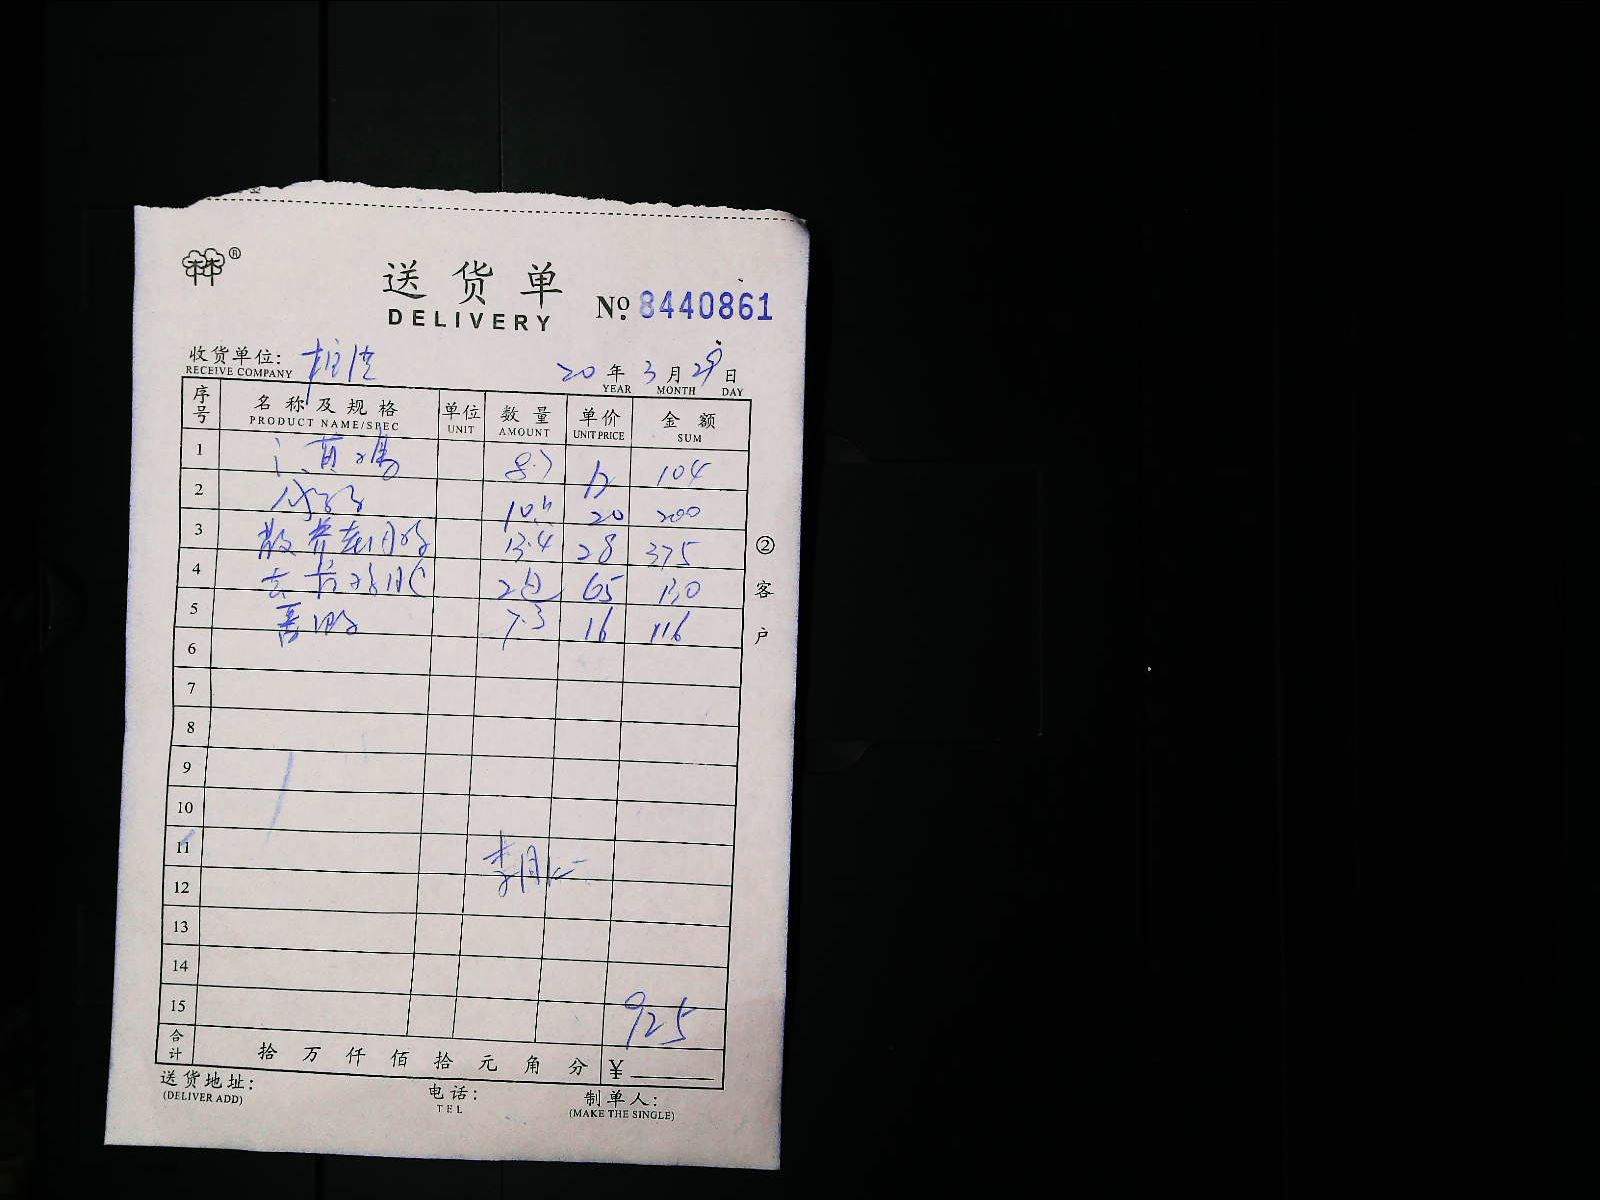 送货单
DELIVERY
Nº 8440861
收货单位:
RECEIVE COMPANY
20 年 3 月 29 日
YEAR MONTH DAY
序号 名称及规格 单位 数量 单价 金额
PRODUCT NAME/SPEC UNIT AMOUNT UNIT PRICE SUM
1 8.7 12 104
2 20 200
3 散养老 13.4 28 375
4 2包 65 130
5 7.3 16 116
6
7
8
9
10
11
12
13
14
15 925
合计 拾 万 仟 佰 拾 元 角 分 ¥
②客户
送货地址: 电话: 制单人:
(DELIVER ADD) TEL (MAKE THE SINGLE)